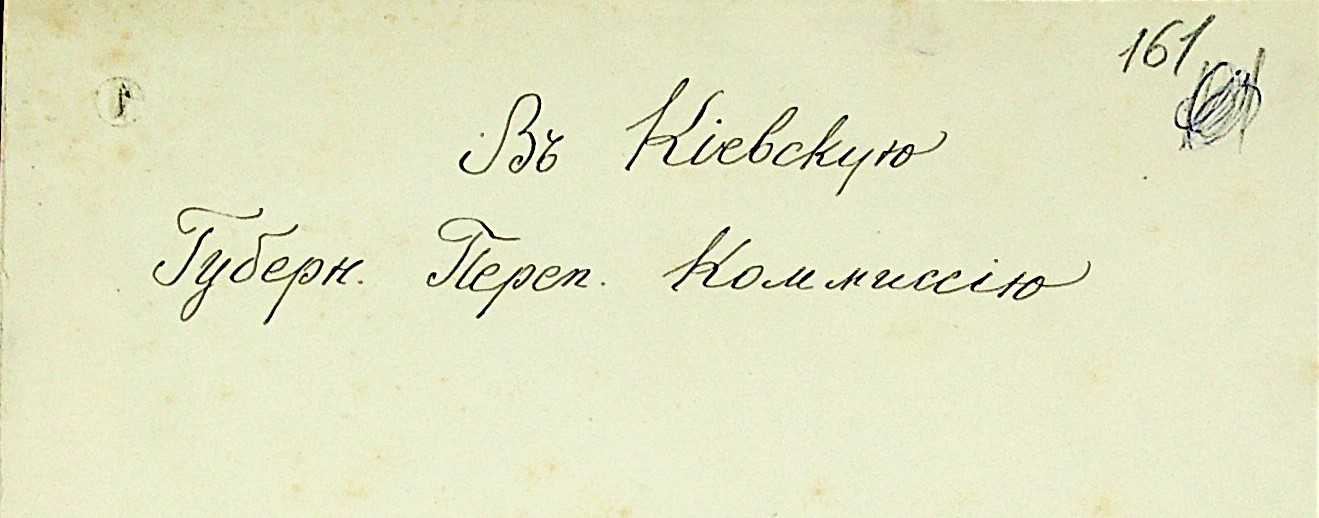 161
Въ Кіевскую
Губерн. Переп. Коммиссію